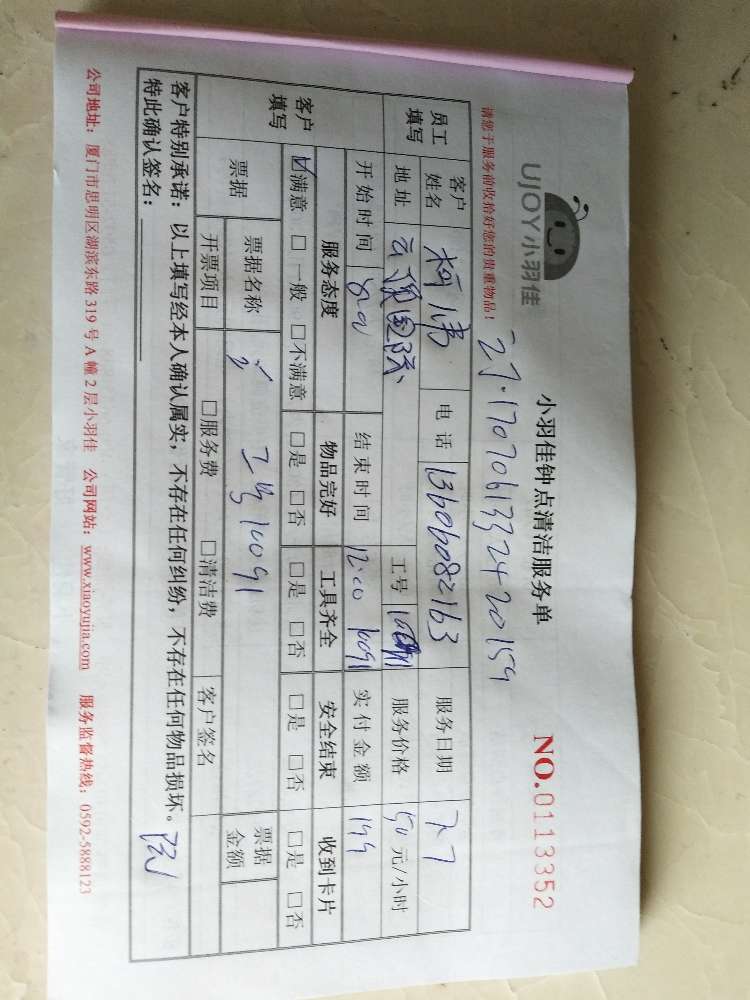 UJOY小羽佳
小羽佳钟点清洁服务单
NO.0113352
请您于服务前收拾好您的贵重物品!
27.1707061332420159
员工填写 客户姓名 柯 电话 13606082163 服务日期 7.7
地址 云顶国际 工号 服务价格 50 元/小时
客户填写 开始时间 8:00 结束时间 12:00 10091 实付金额 199
服务态度 物品完好 工具齐全 安全结束 收到卡片
☑满意 □一般 □不满意 □是 □否 □是 □否 □是 □否 □是 □否
票据 票据名称 工号10091 票据金额
开票项目 □服务费 □清洁费 客户签名
客户特别承诺：以上填写经本人确认属实，不存在任何纠纷，不存在任何物品损坏。
特此确认签名：
公司地址：厦门市思明区湖滨东路 319 号 A 幢 2 层小羽佳 公司网站：www.xiaoyujia.com 服务监督热线：0592-5888123